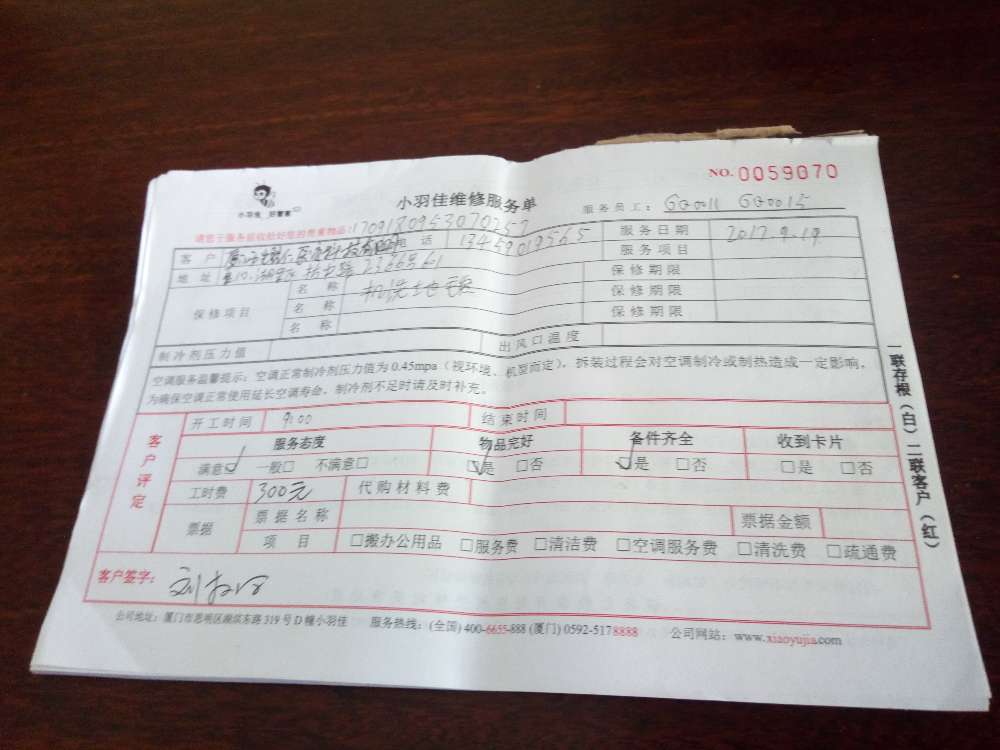 NO. 0059070
小羽佳 好管家
小羽佳维修服务单
服务员工： GG0011 GG0015
请您于服务前收拾好您的贵重物品： 1709180953070257
客 户 电 话 13459019565 服务日期 2017.9.19
地 址 服务项目
保修项目 名 称 机洗地毯 保修期限
名 称 保修期限
名 称 保修期限
制冷剂压力值 出风口温度
空调服务温馨提示：空调正常制冷剂压力值为0.45mpa（视环境、机型而定），拆装过程会对空调制冷或制热造成一定影响，
为确保空调正常使用延长空调寿命，制冷剂不足时请及时补充。
客户评定
开工时间 9:00 结束时间
服务态度 物品完好 备件齐全 收到卡片
满意☑ 一般□ 不满意□ ☑是 □否 ☑是 □否 □是 □否
工时费 300元 代购材料费
票据 票据名称 票据金额
项 目 □搬办公用品 □服务费 □清洁费 □空调服务费 □清洗费 □疏通费
客户签字：
公司地址：厦门市思明区湖滨东路319号D幢小羽佳 服务热线：(全国) 400-6655-888 (厦门) 0592-5178888 公司网站：www.xiaoyujia.com
一联存根（白）二联客户（红）